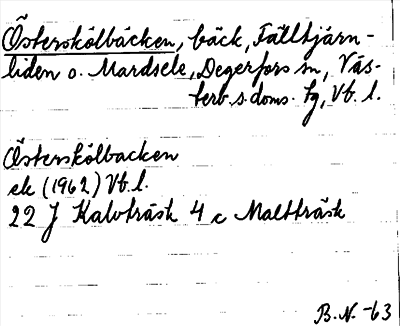 Österskölbäcken, bäck, Fälltjärn-
liden o. Mardsele, Degerfors sn, Väs-
terb. s. doms. fg, Vb. l.
Österskölbacken
ek (1962) Vb. l.
22 J Kalvträsk 4 c Maltträsk
B. N. -63